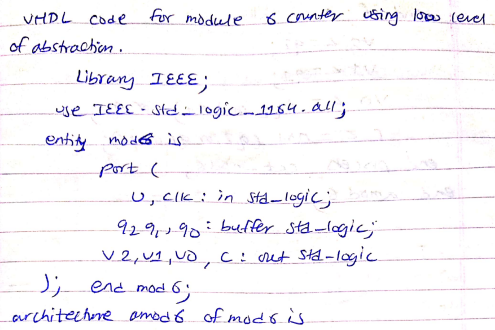 VHDL code for module 6 counter using low level
of abstraction.
Library IEEE;
use IEEE.std_logic_1164.all;
entity mod6 is
port (
U, clk : in std_logic;
q2 q1, q0 : buffer std_logic;
V2, V1, V0, C : out std_logic
); end mod6;
architecture amod6 of mod6 is